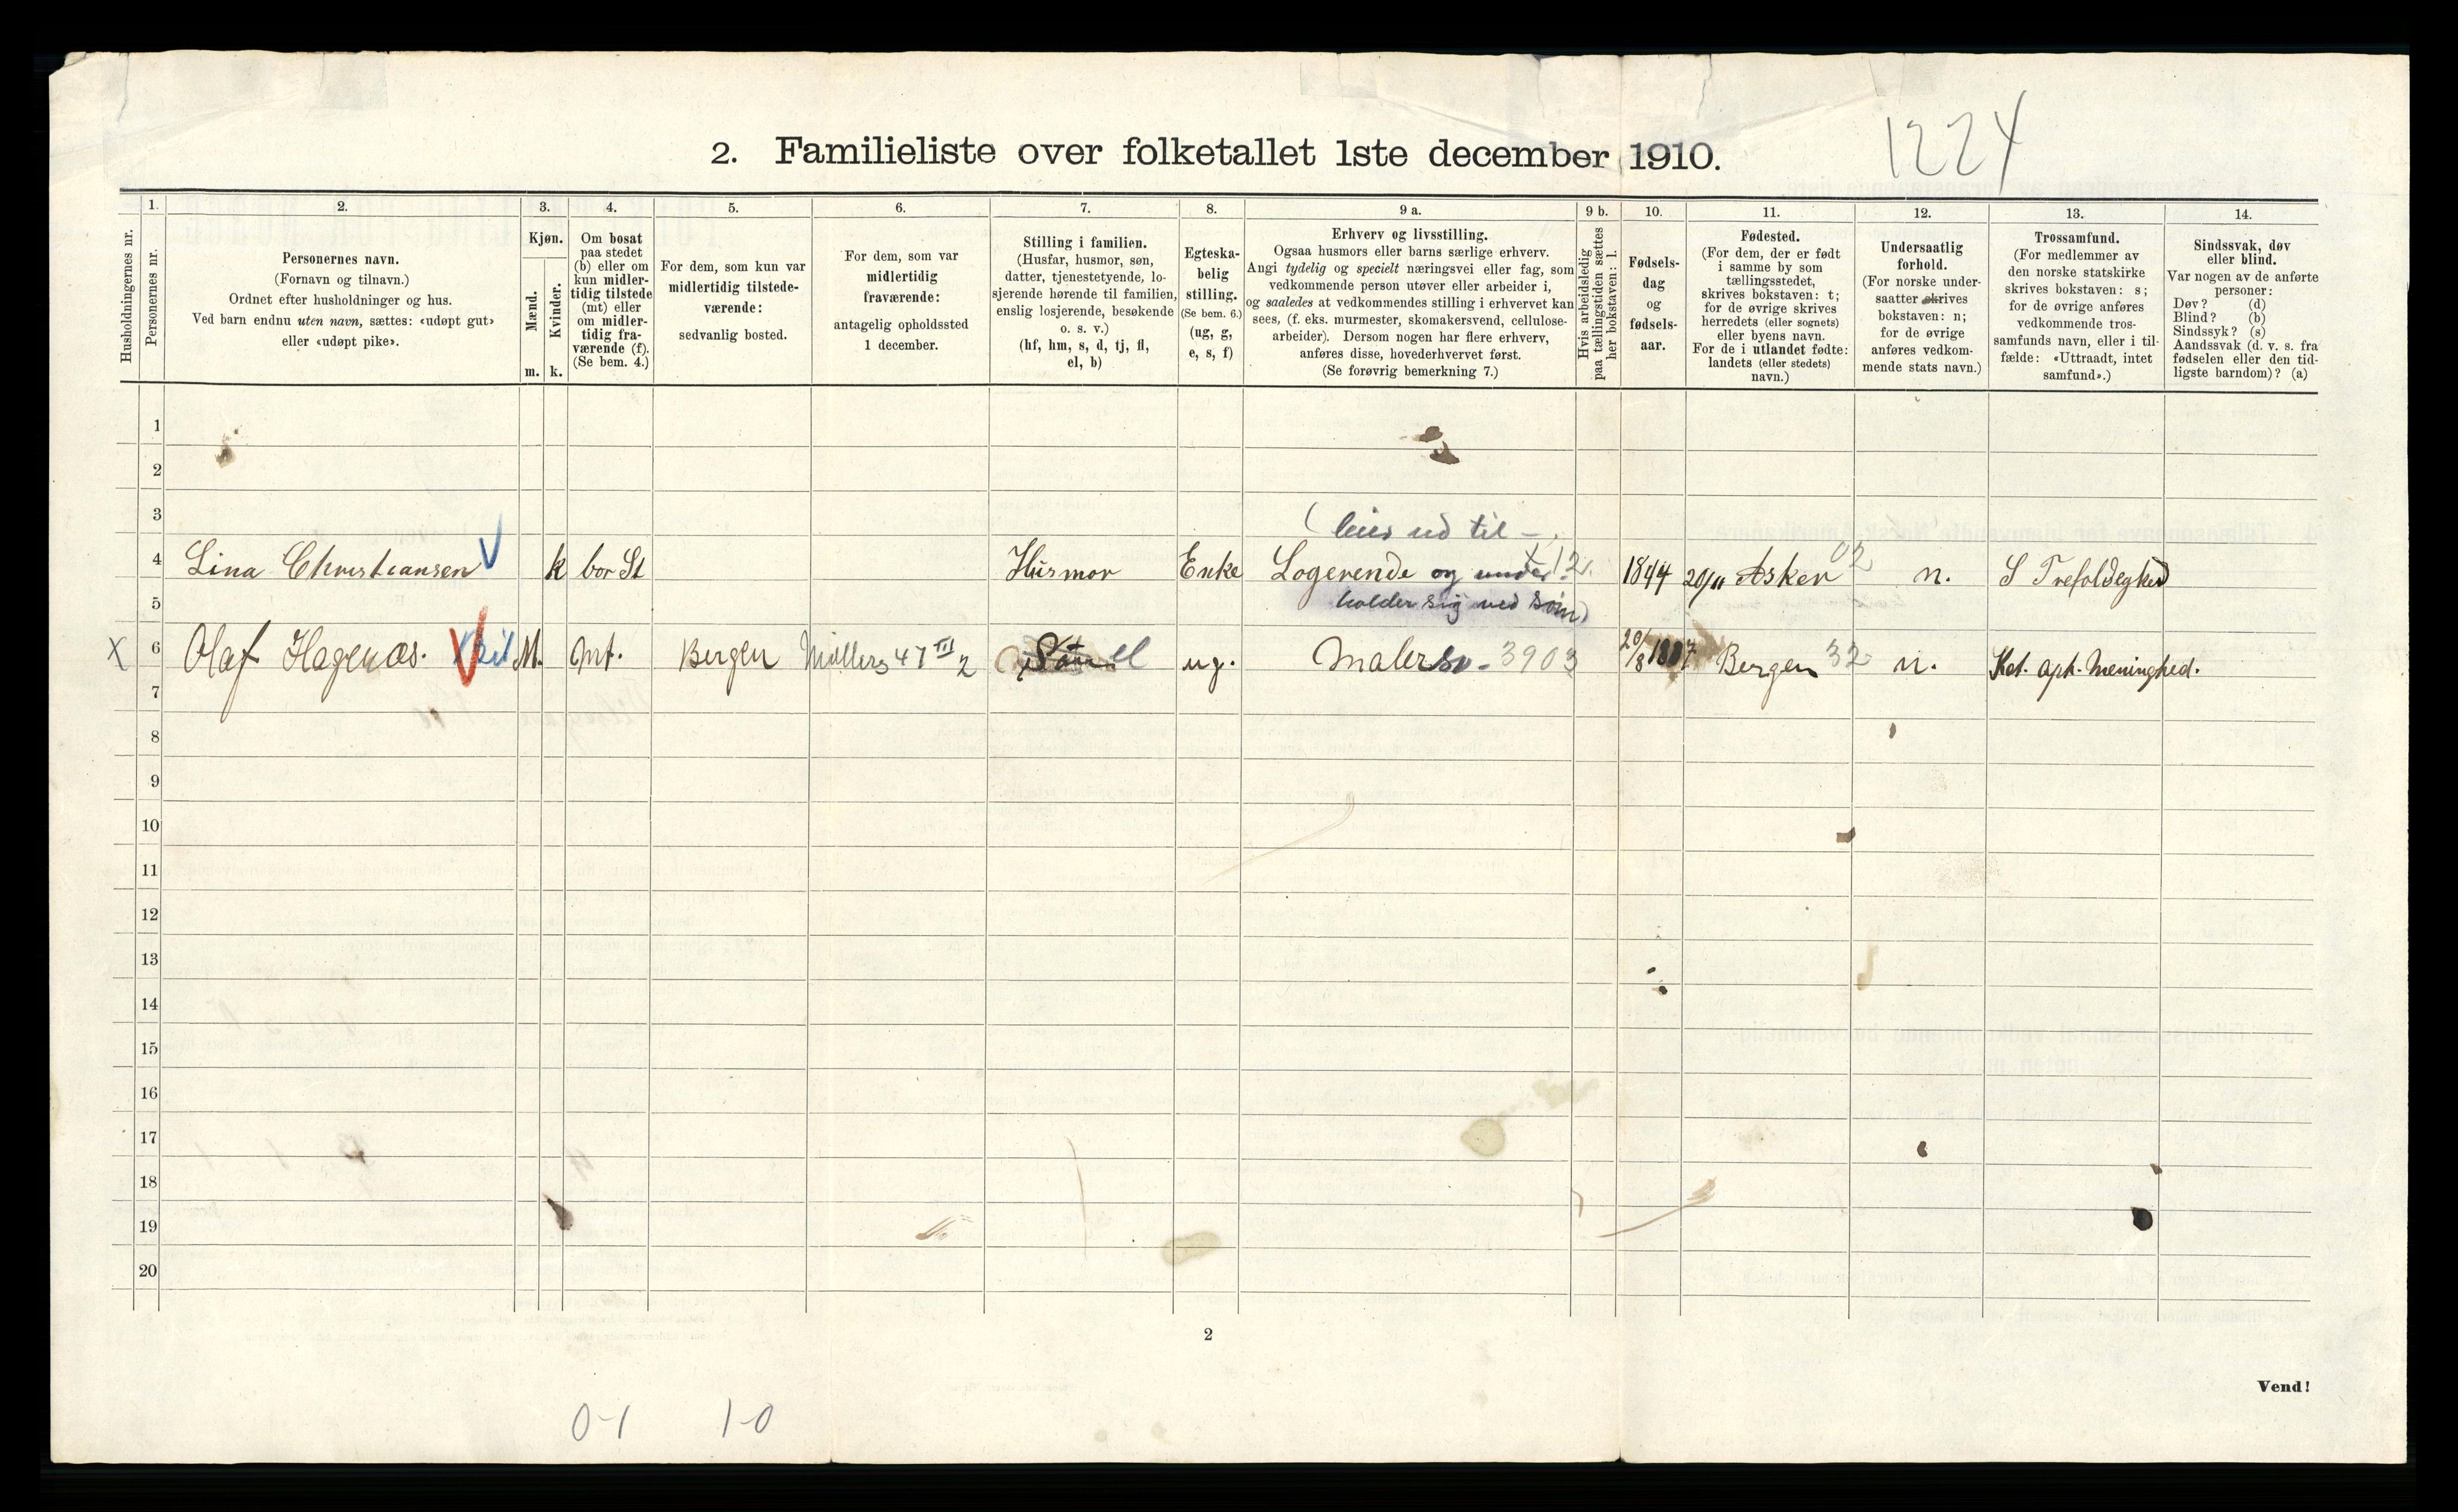 1224
2. Familieliste over folketallet 1ste december 1910.
Husholdningernes nr.
1.
Personernes nr.
2.
Personernes navn.
(Fornavn og tilnavn.)
Ordnet efter husholdninger og hus.
Ved barn endnu uten navn, sættes: «udøpt gut»
eller «udøpt pike».
3.
Kjøn.
Mænd.
Kvinder.
m. k.
4.
Om bosat
paa stedet
(b) eller om
kun midler-
tidig tilstede
(mt) eller
om midler-
tidig fra-
værende (f).
(Se bem. 4.)
5.
For dem, som kun var
midlertidig tilstede-
værende:
sedvanlig bosted.
6.
For dem, som var
midlertidig
fraværende:
antagelig opholdssted
1 december.
7.
Stilling i familien.
(Husfar, husmor, søn,
datter, tjenestetyende, lo-
sjerende hørende til familien,
enslig losjerende, besøkende
o. s. v.)
(hf, hm, s, d, tj, fl,
el, b)
8.
Egteska-
belig
stilling.
(Se bem. 6.)
(ug, g,
e, s, f)
9 a.
Erhverv og livsstilling.
Ogsaa husmors eller barns særlige erhverv.
Angi tydelig og specielt næringsvei eller fag, som
vedkommende person utøver eller arbeider i,
og saaledes at vedkommendes stilling i erhvervet kan
sees, (f. eks. murmester, skomakersvend, cellulose-
arbeider). Dersom nogen har flere erhverv,
anføres disse, hovederhvervet først.
(Se forøvrig bemerkning 7.)
9 b.
Hvis arbeidsledig
paa tællingstiden sættes
her bokstaven: l.
10.
Fødsels-
dag
og
fødsels-
aar.
11.
Fødested.
(For dem, der er født
i samme by som
tællingsstedet,
skrives bokstaven: t;
for de øvrige skrives
herredets (eller sognets)
eller byens navn.
For de i utlandet fødte:
landets (eller stedets)
navn.)
12.
Undersaatlig
forhold.
(For norske under-
saatter skrives
bokstaven: n;
for de øvrige
anføres vedkom-
mende stats navn.)
13.
Trossamfund.
(For medlemmer av
den norske statskirke
skrives bokstaven: s;
for de øvrige anføres
vedkommende tros-
samfunds navn, eller i til-
fælde: «Uttraadt, intet
samfund».)
14.
Sindssvak, døv
eller blind.
Var nogen av de anførte
personer:
Døv? (d)
Blind? (b)
Sindssyk? (s)
Aandssvak (d. v. s. fra
fødselen eller den tid-
ligste barndom)? (a)
1
2
3 (leies ud til -
4 Lina Christiansen k bor St Husmor Enke Logerende og under- x 12. 1844 20/11 Asker 02 n. S Trefoldeghed
5 holder sig ved søm)
X 6 Olaf Hagenæs. M. mt. Bergen Møllerg 47 III 2 el ug. Malersv. 3903 20/8 1887 Bergen 32 n. Kat. apt. Meninghed.
7
8
9
10
11
12
13
14
15
16
17
18
19
20
2
Vend!
0-1 1-0